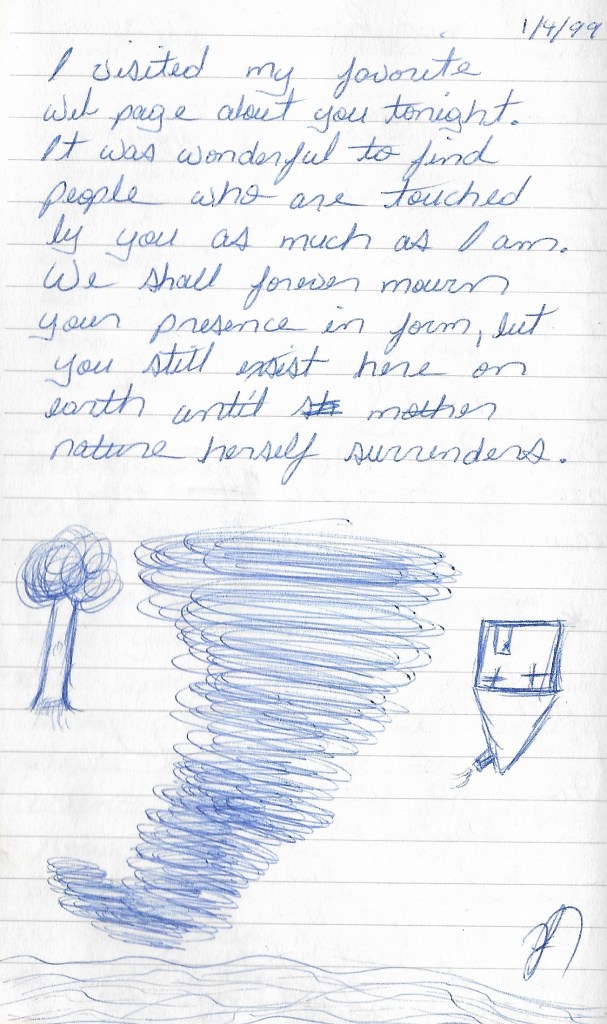 1/4/99
I visited my favorite
web page about you tonight.
It was wonderful to find
people who are touched
by you as much as I am.
We shall forever mourn
your presence in form, but
you still exist here on
earth until mother
nature herself surrenders.